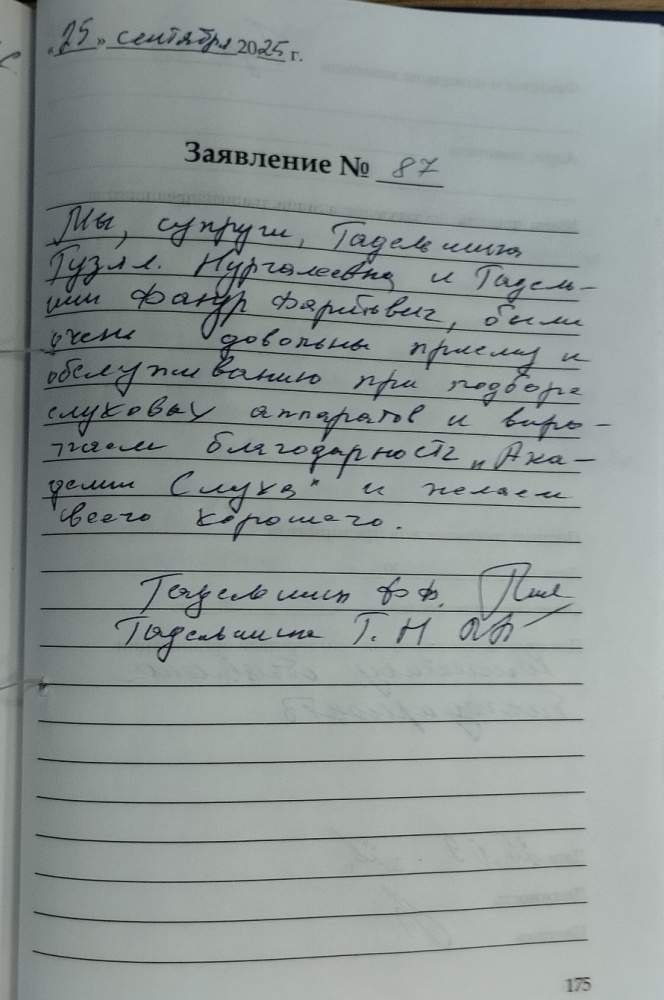 "25" сентября 2025 г.
Заявление № 87
Мы, супруги, Гадельшина
Гузял. Нургалеевна и Гадель-
шин Фанур Фаритович, были
очень довольны приему и
обслуживанию при подборе
слуховых аппаратов и выра-
жаем благодарность "Ака-
демии Слуха" и желаем
всего хорошего.
Гадельшин Ф.Ф.
Гадельшина Г. Н
175